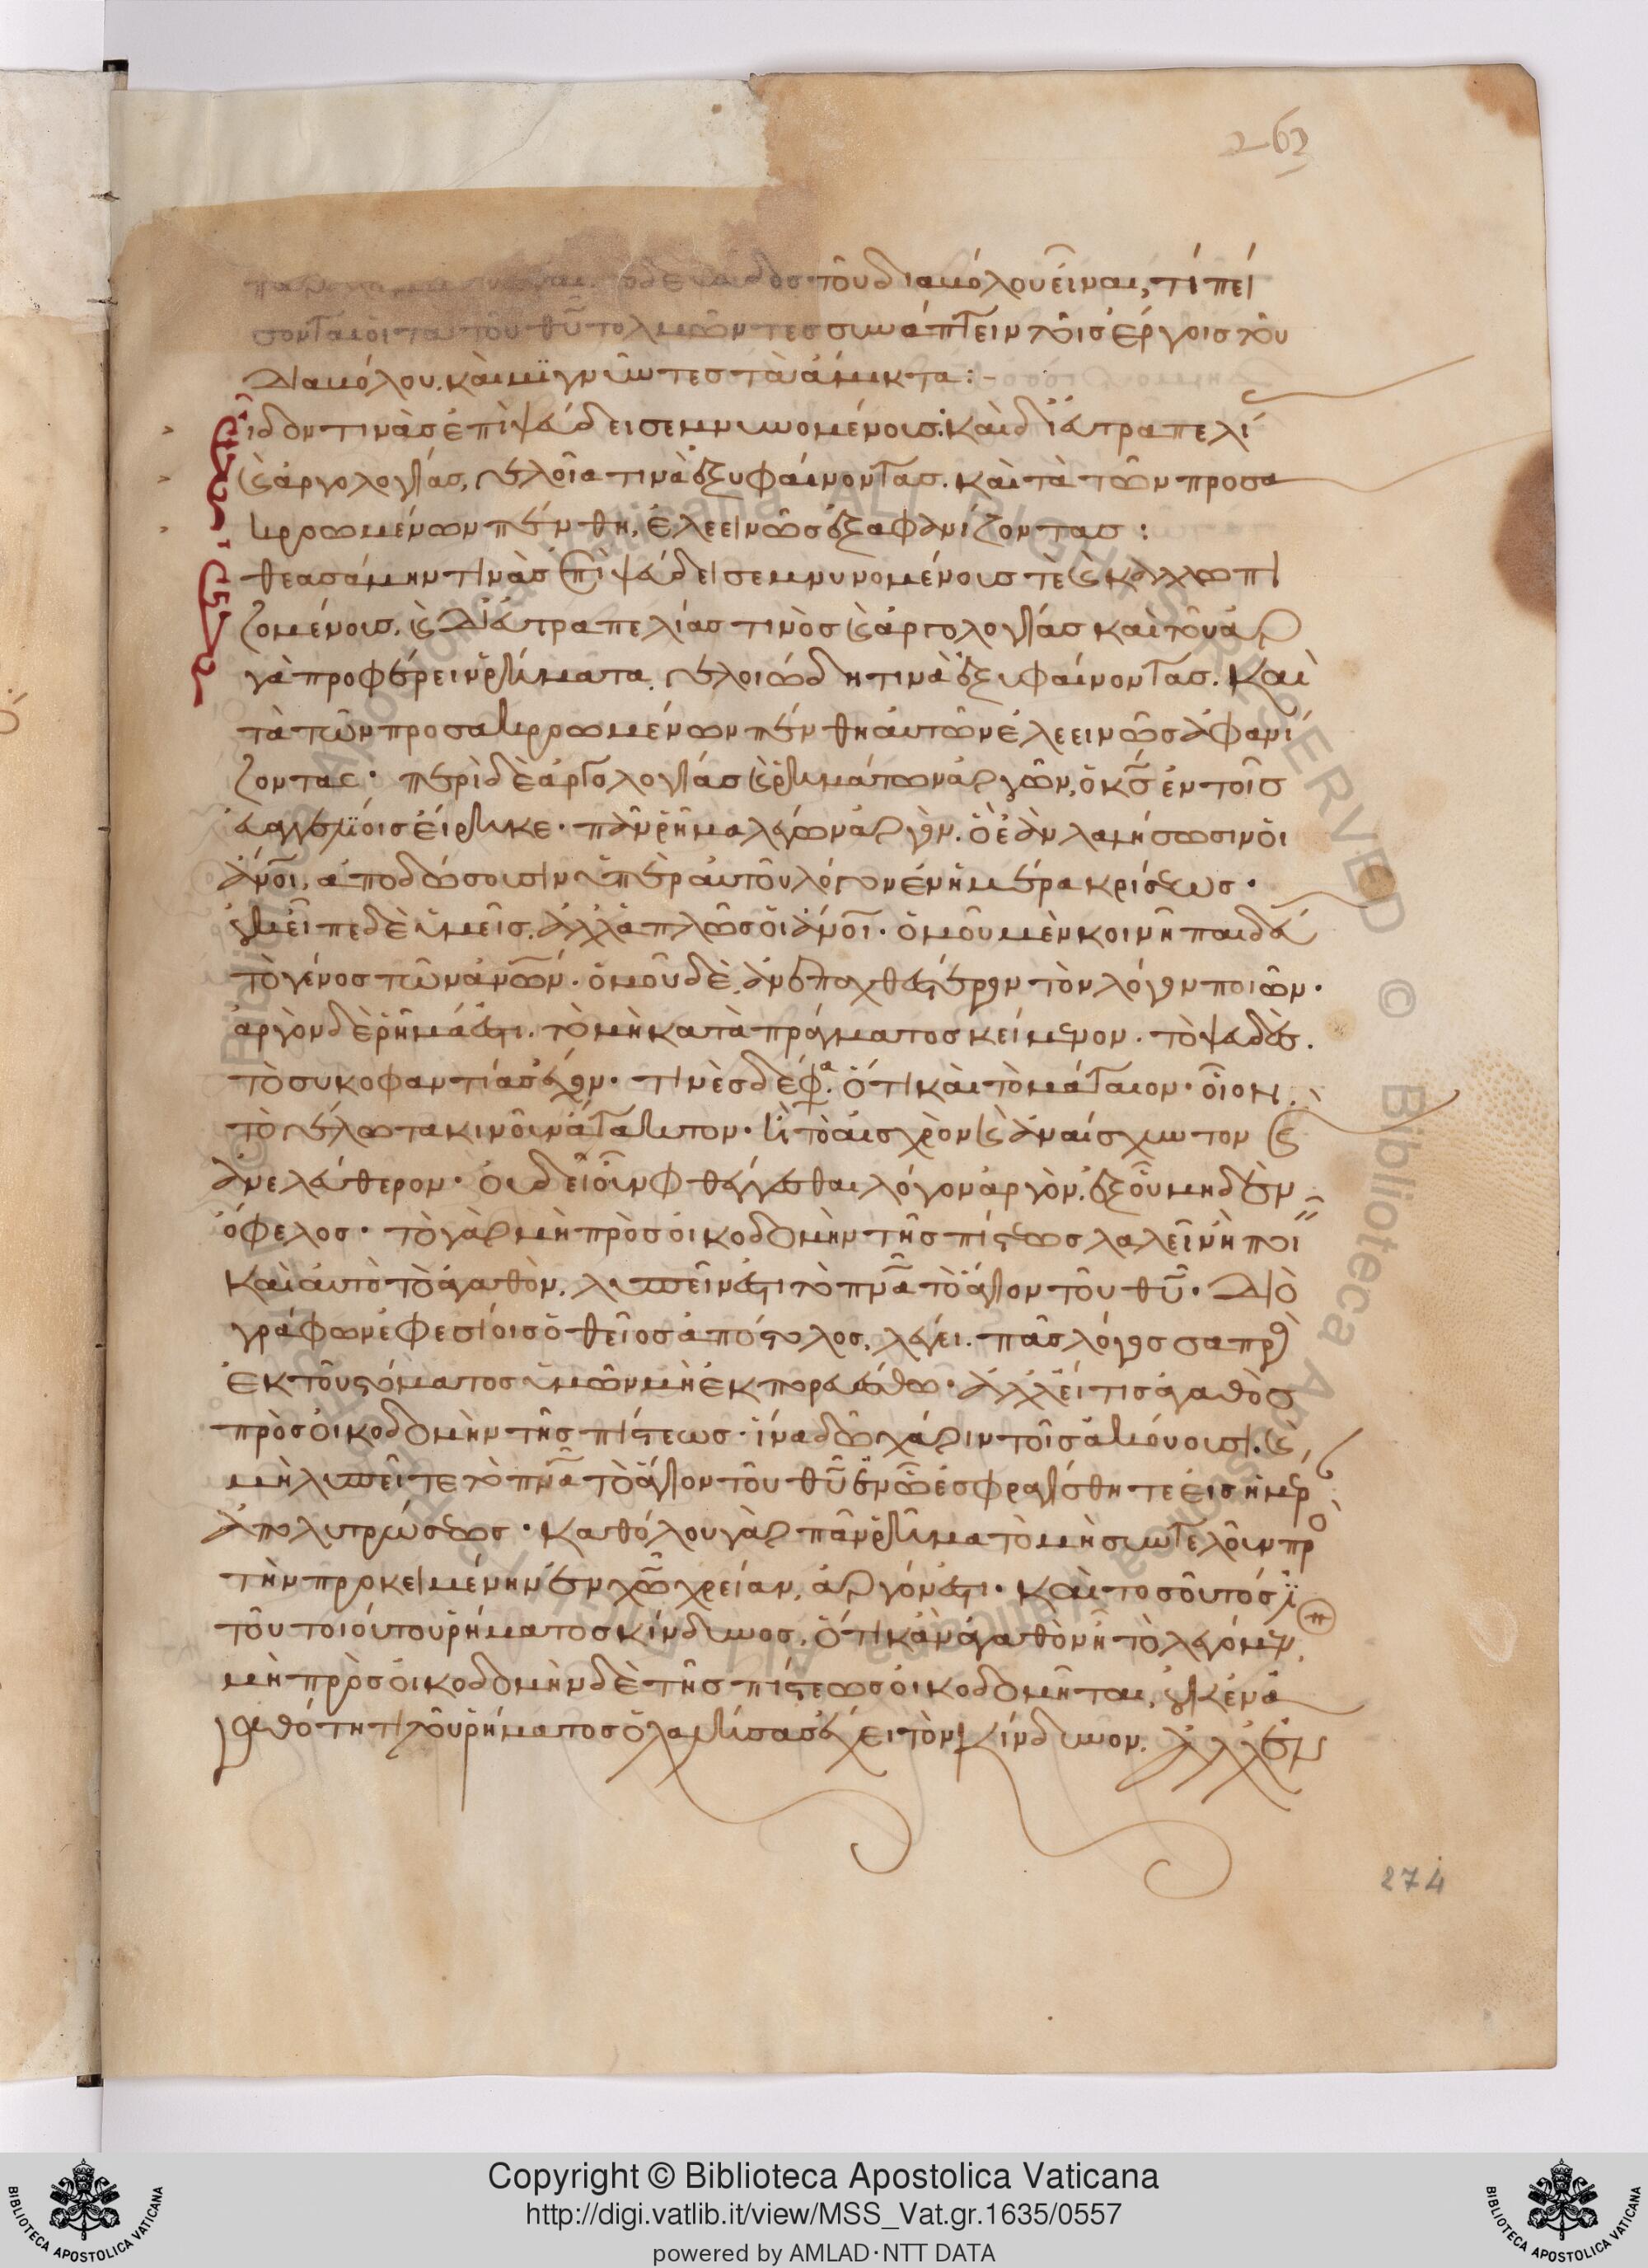 262
τοῦ διαβόλου εἶναι, τί πεί
σονται οἱ τὰ τοῦ θῦ τολμῶντες συνάπτειν τοῖς ἔργοις τοῦ
διαβόλου. καὶ μιγνῦντες τὰ ἄμικτα :-
εἶδόν τινὰς ἐπὶ ψεύδει σεμνυνομένους. καὶ δι' εὐτραπελί
ας καὶ ἀργολογίας, γέλοιά τινα ἐξυφαίνοντας. καὶ τὰ τῶν προσα
κροωμένων πένθη, ἐλεεινῶς ἐξαφανίζοντας :
θεασάμην τινὰς ἐπὶ ψεύδει σεμνυνομένους τὲ καὶ καλλωπι
ζομένους, καὶ δι' εὐτραπελίας τινὸς καὶ ἀργολογίας καὶ τοῦ ἀρ
γὰ προφέρειν ῥήματα. γελοιώδη τινὰ ἐξυφαίνοντας. καὶ
τὰ τῶν προσακροωμένων πένθη αὐτῶν ἐλεεινῶς ἀφανί
ζοντας. περὶ δὲ ἀργολογίας καὶ ῥημάτων ἀργῶν, ὁ κς ἐν τοῖς
εὐαγγελίοις εἴρηκε. πᾶν ῥῆμα λέγων ἀργὸν. ὃ ἐὰν λαλήσωσιν οἱ
ἄνοι, ἀποδώσουσιν ὑπὲρ αὐτοῦ λόγον ἐν ἡμέρα κρίσεως.
οὐκ εἶπε δὲ ὑμεῖς. ἀλλ' ἁπλῶς οἱ ἄνοι. ὁμοῦ μὲν κοινῆ παιδεύ
τὸ γένος τῶν ἀνων. ὁμοῦ δὲ ἀνεπαχθέστερον τὸν λόγον ποιῶν.
ἀργὸν δὲ ῥῆμά ἐστι. τὸ μὴ κατὰ πράγματος κείμενον. τὸ ψευδὲς.
τὸ συκοφαντίας ἔχον. τινὲς δέ φα. ὅτι καὶ τὸ μάταιον. οἷον
τὸ γέλωτα κινοῦν ἄτακτον. ἢ τὸ αἰσχρὸν καὶ ἀναίσχυντον καὶ
ἀνελεύθερον. οὐ δεῖ οὖν φθέγγεσθαι λόγον ἀργὸν. ἐξ οὗ μηδὲν
ὄφελος. τὸ γὰρ μὴ πρὸς οἰκοδομὴν τῆς πίστεως λαλεῖν ἢ ποι
καὶ αὐτὸ τὸ ἀγαθὸν. λυπεῖν ἐστι τὸ πνα τὸ ἅγιον τοῦ θῦ. διὸ
γράφων ἐφεσίοις ὁ θεῖος ἀπόστολος, λέγει. πᾶς λόγος σαπρὸς
ἐκ τοῦ στόματος ὑμῶν μὴ ἐκπορευέσθω. ἀλλ' εἴ τις ἀγαθὸς
πρὸς οἰκοδομὴν τῆς πίστεως. ἵνα δῶ χάριν τοῖς ἀκούουσι. καὶ
μὴ λυπεῖτε τὸ πνα τὸ ἅγιον τοῦ θῦ ἐν ᾧ ἐσφραγίσθητε εἰς ἡμέρ
ἀπολυτρώσεως. καθόλου γὰρ πᾶν ῥῆμα τὸ μὴ συντελοῦν πρὸ
τὴν προκειμένην ἐν χῶ χρείαν, ἀργόν ἐστι. καὶ τοσοῦτός ἐ
τοῦ τοιούτου ῥήματος κίνδυνος, ὅτι κἂν ἀγαθὸν ῆ τὸ λεγόμεν
μὴ πρὸς οἰκοδομὴν δὲ τῆς πίστεως οἰκοδομῆται, οὐκ ἐν ἀ
γαθότητι τοῦ ῥήματος ὁ λαλήσας ἔχει τὸν κίνδυνον. ἀλλ' ἐν
274
Copyright © Biblioteca Apostolica Vaticana
http://digi.vatlib.it/view/MSS_Vat.gr.1635/0557
powered by AMLAD·NTT DATA
BIBLIOTECA APOSTOLICA VATICANA
BIBLIOTECA APOSTOLICA VATICANA